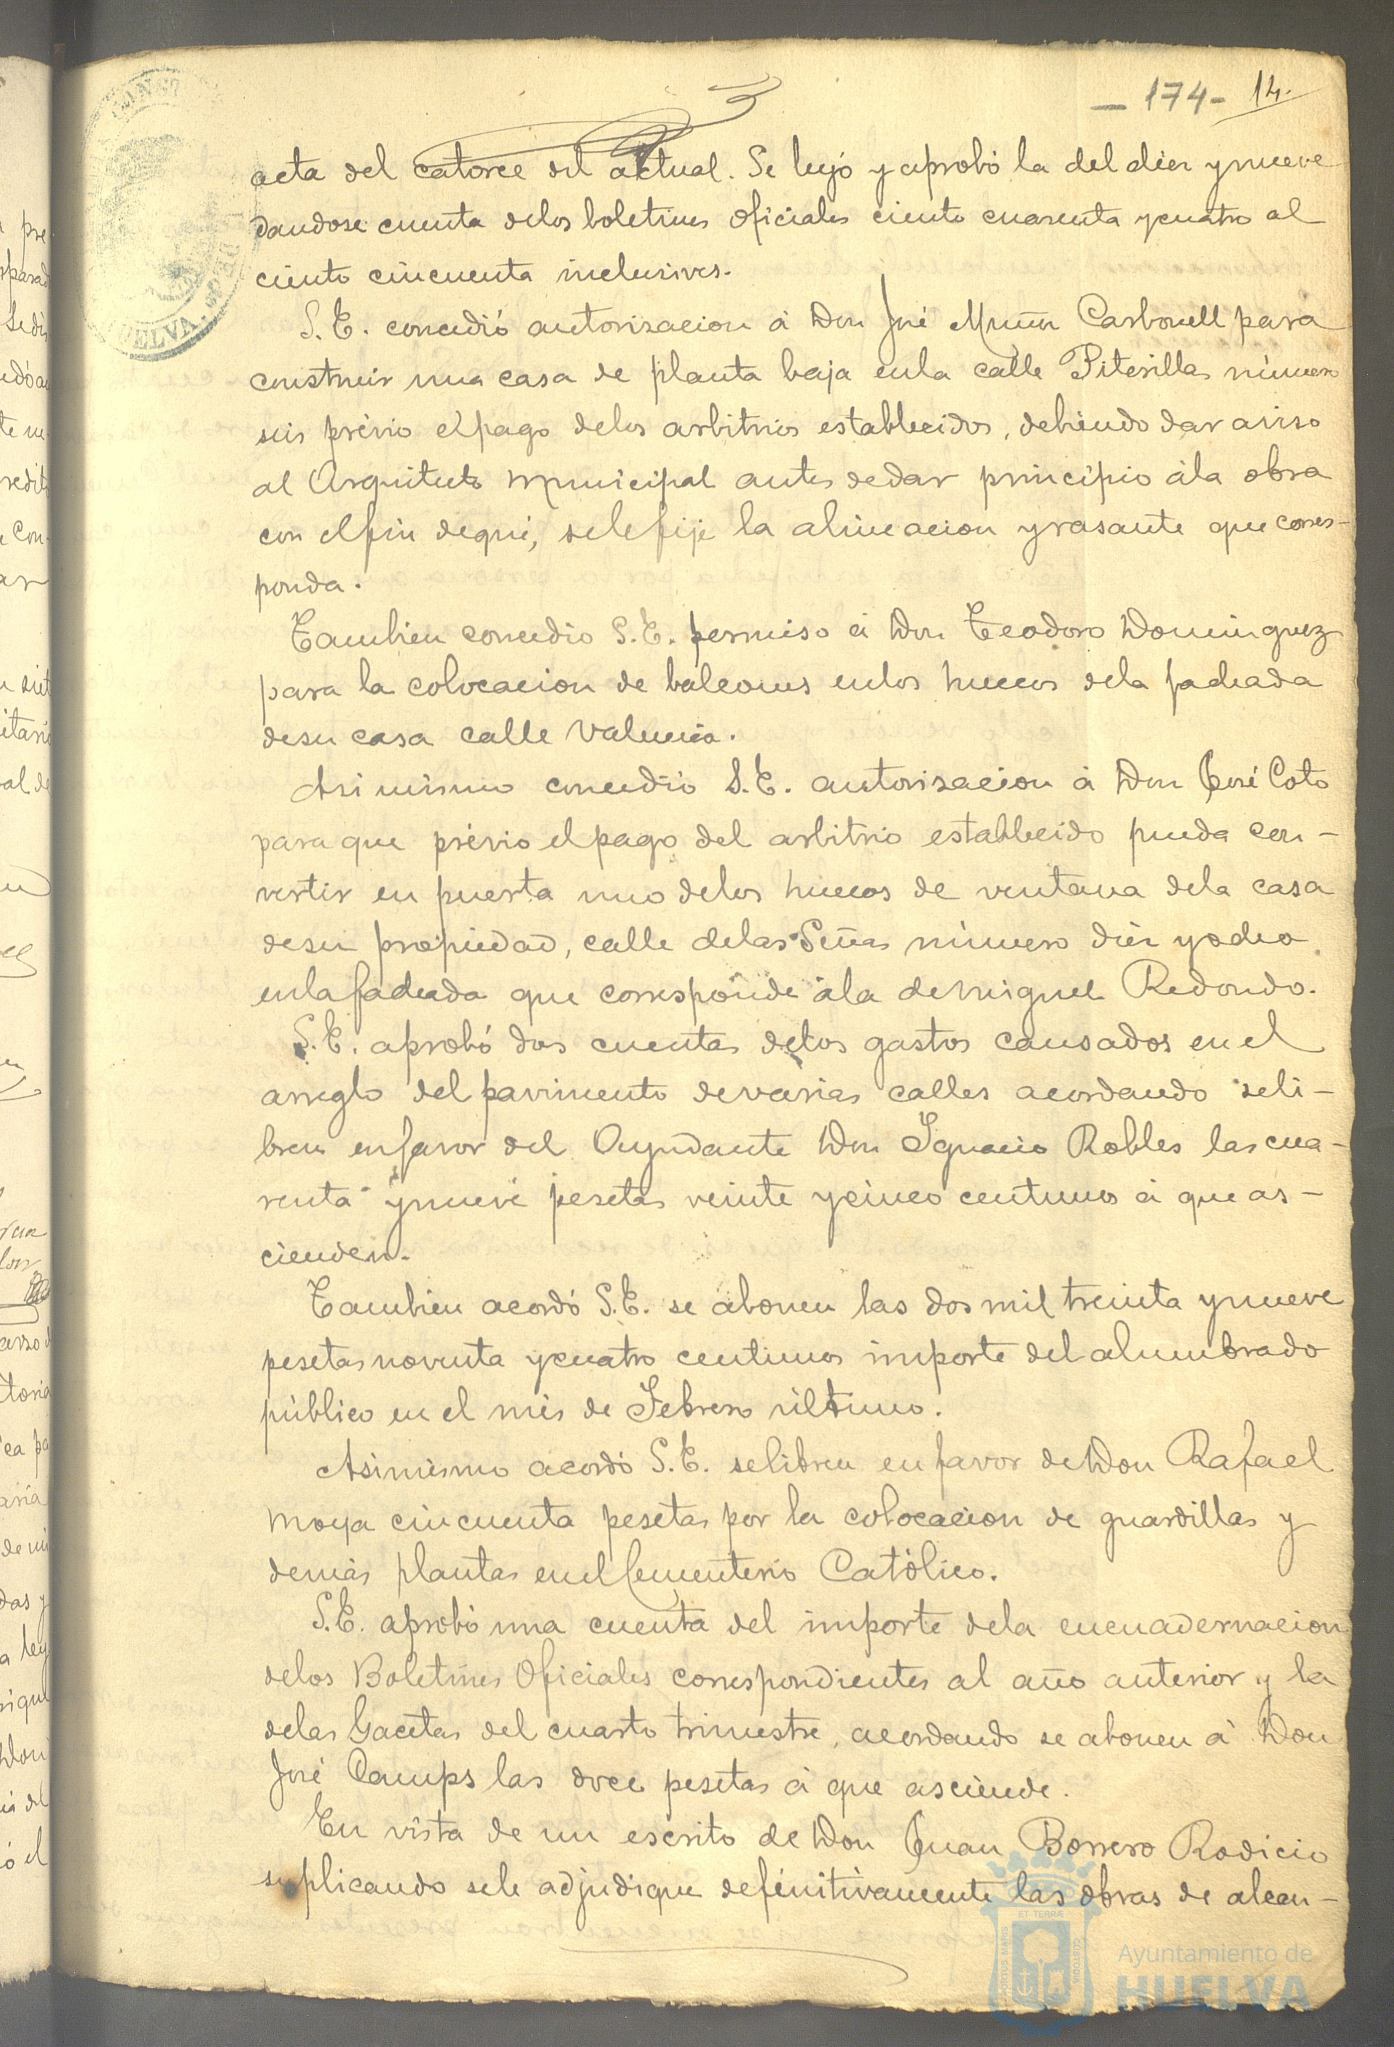 - 174 - 14.
acta del catorce del actual. Se leyó y aprobó la del diez y nueve
dandose cuenta delos boletines oficiales ciento cuarenta y cuatro al
ciento cincuenta inclusives.
S. E. concedió autorizacion á Don José Muñoz Carbonell para
construir una casa de planta baja enla calle Piterilla número
seis prévio el pago delos arbitrios establecidos, debiendo dar aviso
al Arquitecto municipal antes dedar principio ála obra
con elfin deque, selefije la alineacion y rasante que corres-
ponda.
Tambien concedio S. E. permiso á Don Teodoro Dominguez
para la colocacion de balcones enlos huecos dela fachada
desu casa calle Valencia.
Asi mismo concedió S. E. autorizacion á Don José Coto
para que prévio el pago del arbitrio establecido pueda con-
vertir en puerta uno delos huecos de ventana dela casa
desu propiedad, calle delas Señas número diez y ocho
enla fachada que corresponde ála de Miguel Redondo.
S. E. aprobó dos cuentas delos gastos causados en el
arreglo del pavimento devarias calles acordando seli-
bren enfavor del Ayudante Don Ignacio Robles las cua-
renta y nueve pesetas veinte y cinco centimos á que as-
cienden.
Tambien acordó S. E. se abonen las dos mil treinta y nueve
pesetas noventa y cuatro centimos importe del alumbrado
público en el mes de Febrero último.
Asimismo acordó S. E. selibren en favor de Don Rafael
Moya cincuenta pesetas por la colocacion de guardillas y
demás plantas enel Cementerio Católico.
S. E. aprobó una cuenta del importe dela encuadernacion
delos Boletines Oficiales correspondientes al año anterior y la
delas Gacetas del cuarto trimestre, acordando se abonen á Don
José Camps las doce pesetas á que asciende.
En vista de un escrito de Don Juan Borrero Rodicio
suplicando sele adjudique definitivamente las obras de alcan-
Ayuntamiento de
HUELVA